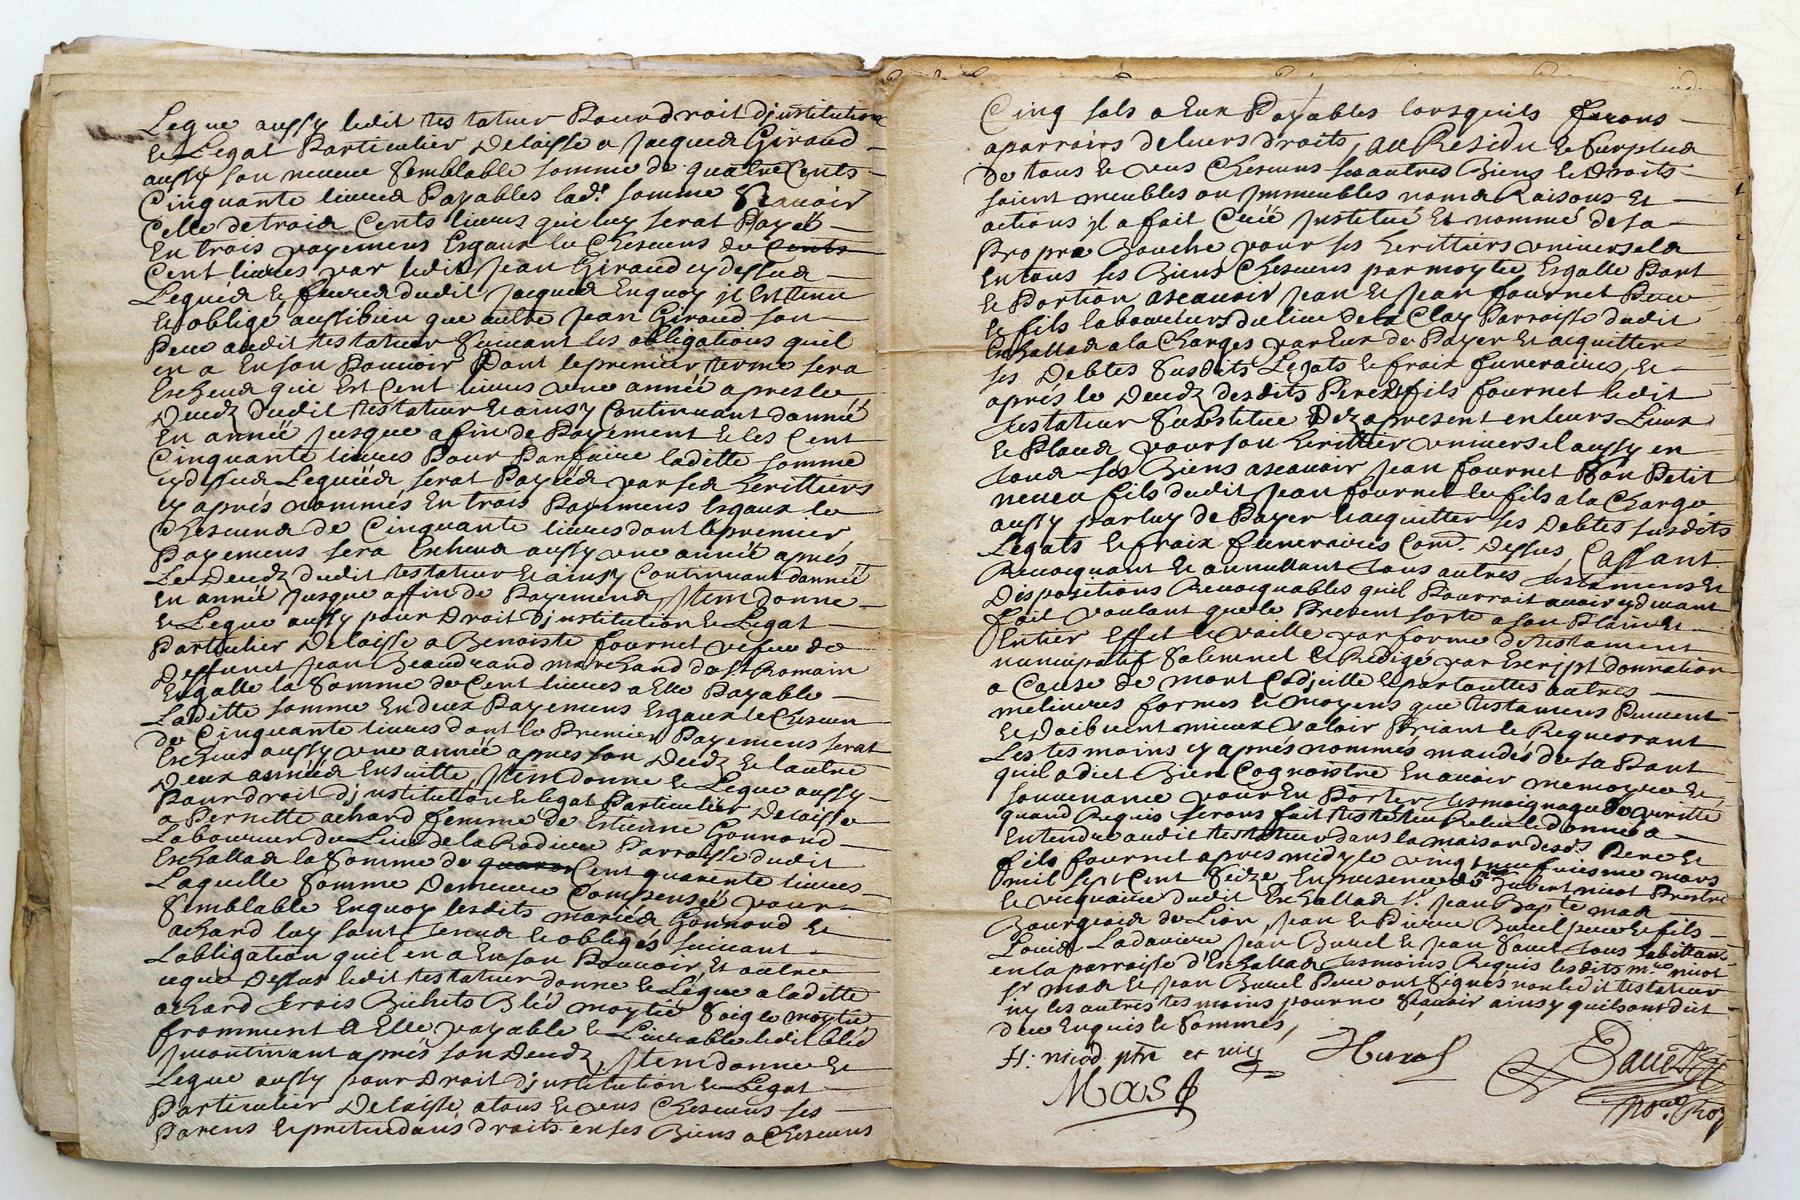 Legue aussy ledit testateur Pour droit d'jnstitution
& Legat Particulier Delaisse a Jacques Giraud
aussy son neveu Semblable somme de quatre Cents
Cinquante livres Payables lad.e somme Scavoir
Celle de trois Cents livres qui luy serat Payeé
En trois payemens Esgaux le Chescuns de Cents
Cent livres par ledit Jean Giraud cy dessus
Leguéz & freres dudit Jacques Enquoy jl Est tenu
& obligé aussi bien que aultre Jean Giraud son
Pere audit testateur Suivant les obligations quil
en a En son Pouvoir Dont le premier terme sera
Escheus qui Est Cent livres une anneé apres le
Decedz dudit testateur & ainsy Continuant danneé
En anneé Jusque a fin de Payement & les Cent
Cinquante livres Pour Parfaire laditte somme
cy dessus Leguéés serat Payéés par ses heritiers
cy aprés nommés En trois Payemens Esgaux le
Chescuns de Cinquante livres dont le premier
Payemens sera Escheus aussy une anneé aprés
Le Decedz dudit testateur & ainsy Continuant danneé
En anneé Jusque affin de Payemens, Jtem donne
& Legue aussy pour Droit d'jnstitution & Legat
Particulier Delaisse a Benoiste fournet vefue de
deffunct Jean Beaudrand marchand de St Romain
En galle la Somme de Cent livres a Elle Payable
Laditte somme En deux Payemens Esgaux le Chescun
de Cinquante livres dont le Premier Payemens serat
Escheus aussy une anneé apres son Decedz & lautre
Deux anneés Ensuitte, Jtem donne & Legue aussy
Pour droit d'jnstitution & legat Particulier Delaisse
a Pernette achard femme de Estienne Gonnond
Laboureur du Lieu de la Rodiere Parroisse dudit
Eschallas la Somme de quaran Cent quarente livres
Laquelle Somme Demeure Compensée pour
Semblable Enquoy lesdits mariés Gonnond &
achard luy sont tenus & obligés suivant
Lobligation quil en a En son Pouvoir, Et oultre
ceque Dessus ledit testateur donne & Legue a laditte
achard trois Bichets Bléd moytié Soigle moytié
fromment a Elle payable & Livrable ledit bléd
Jncontinant aprés son Decedz, Jtem donne &
Legue aussy pour Droit d'jnstitution & Legat
Particulier Delaisse a tous & uns Chescuns ses
Parens & pretendans droits en ses Biens a Chescuns
Cinq sols a Eux Payables lorsquils feront
aparroirs de leurs droits, au Residu & Surplus
De tous & uns Chescuns ses autres Biens & Droits
soient meubles ou Jmmeubles noms Raisons Et
actions jl a fait Creé Jnstitué Et nommé de sa
Propre Bouche pour ses heritiers universels
En tous ses Biens Chescuns par moytié Esgalle Part
& Portion ascavoir Jean & Jean fournet Pere
& fils laboureurs du lieu de la Clay Parroisse dudit
Eschallas a la Charges par Eux de Payer Et acquitter
ses Debtes susdits Legats & fraix funeraires, &
aprés le Decedz desdits Pere & fils fournet ledit
testateur Substitue Dez apresent en leurs Lieux
& Places pour son heritier universel aussy en
tous ses Biens ascavoir Jean fournet son Petit
neveu fils dudit Jean fournet le fils a la Charge
aussy par luy de Payer & acquitter ses Debtes susdits
Legats & fraix funeraires Com.e Dessus, Cassant
Revocquant & annullant tous autres testamens Et
Dispositions Revocquables quil Pourroit avoir cy devant
fait voulant que le Present sorte a son Plain &
Entier Effet & vaille par forme de testament
nuncupatif Solemnel & Redigé par Escript donnation
a Cause de mort Codjcille & par touttes autres
melieures formes & moyens que testamens Peuvent
& doibvent mieux valoir Priant & Requerrant
Les tesmoins cy aprés nommés mandés de sa Part
quil a dict Bien Cognoistre En avoir memoyre &
souvenance pour En Porter tesmoignage de verité
quand Requis seront fait Releu & donné a
Entendre audit testateur dans la maison desds Pere Et
fils fournet apres midy le vingt neufuiesme mars
mil sept Cent Seize En presence de mre hubert nicot Prestre
& viquaire dudit Eschallas Sr Jean Bapte mas
Bourgeois de Lion, Jean & Pierre Burel pere & fils
Louis Ladaviere Jean Burel & Jean tous habittans
en la parroisse d'Eschallas tesmoins Requis lesdits mre nicot
sr mas & Jean Burel Pere ont signés non ledit testateur
ny les autres tesmoins pour ne Scavoir ainsy quils ont dit
deue Enquis & Sommés,
H. nicod ptre et vic
Mas